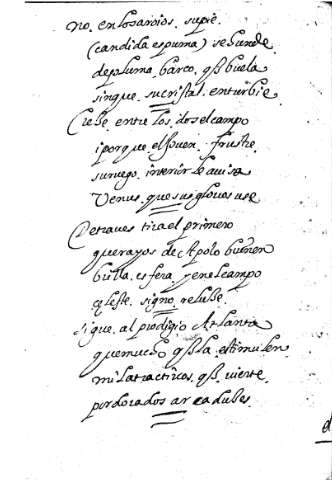 no. en los arroios. supie.
(candida espuma) se hunde
de pluma. barco. q̃ buela
sin que. su cristal. enturbie
Cresse. entre los. dos el campo
i porque el Joven. frustre
su ruego. interior le avisa
Venus. que sus glovos use
De traves tira el primero
que rayos de Apolo buñen
bulla. esfera. y en el campo
celeste. signo. reluse.
sigue. al prodigio Atlanta
que mucho q̃ la. estimulen
mil atractivos. q̃ vierte.
por dorados arcaduses